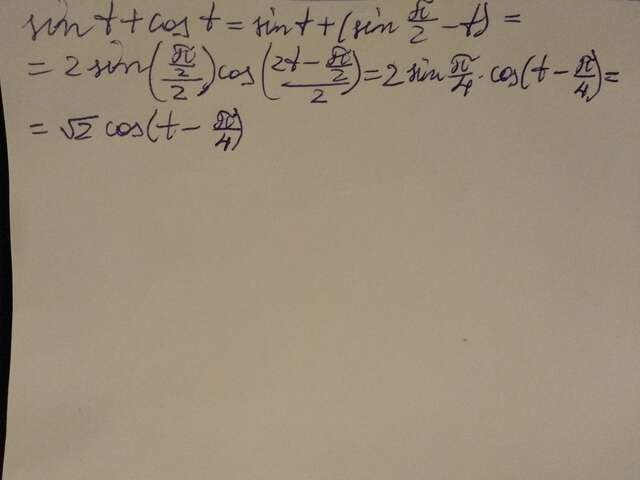 sin t + cos t = sin t + (sin π/2 - t) =
= 2 sin((π/2)/2) cos((2t - π/2)/2) = 2 sin π/4 · cos(t - π/4) =
= √2 cos(t - π/4)